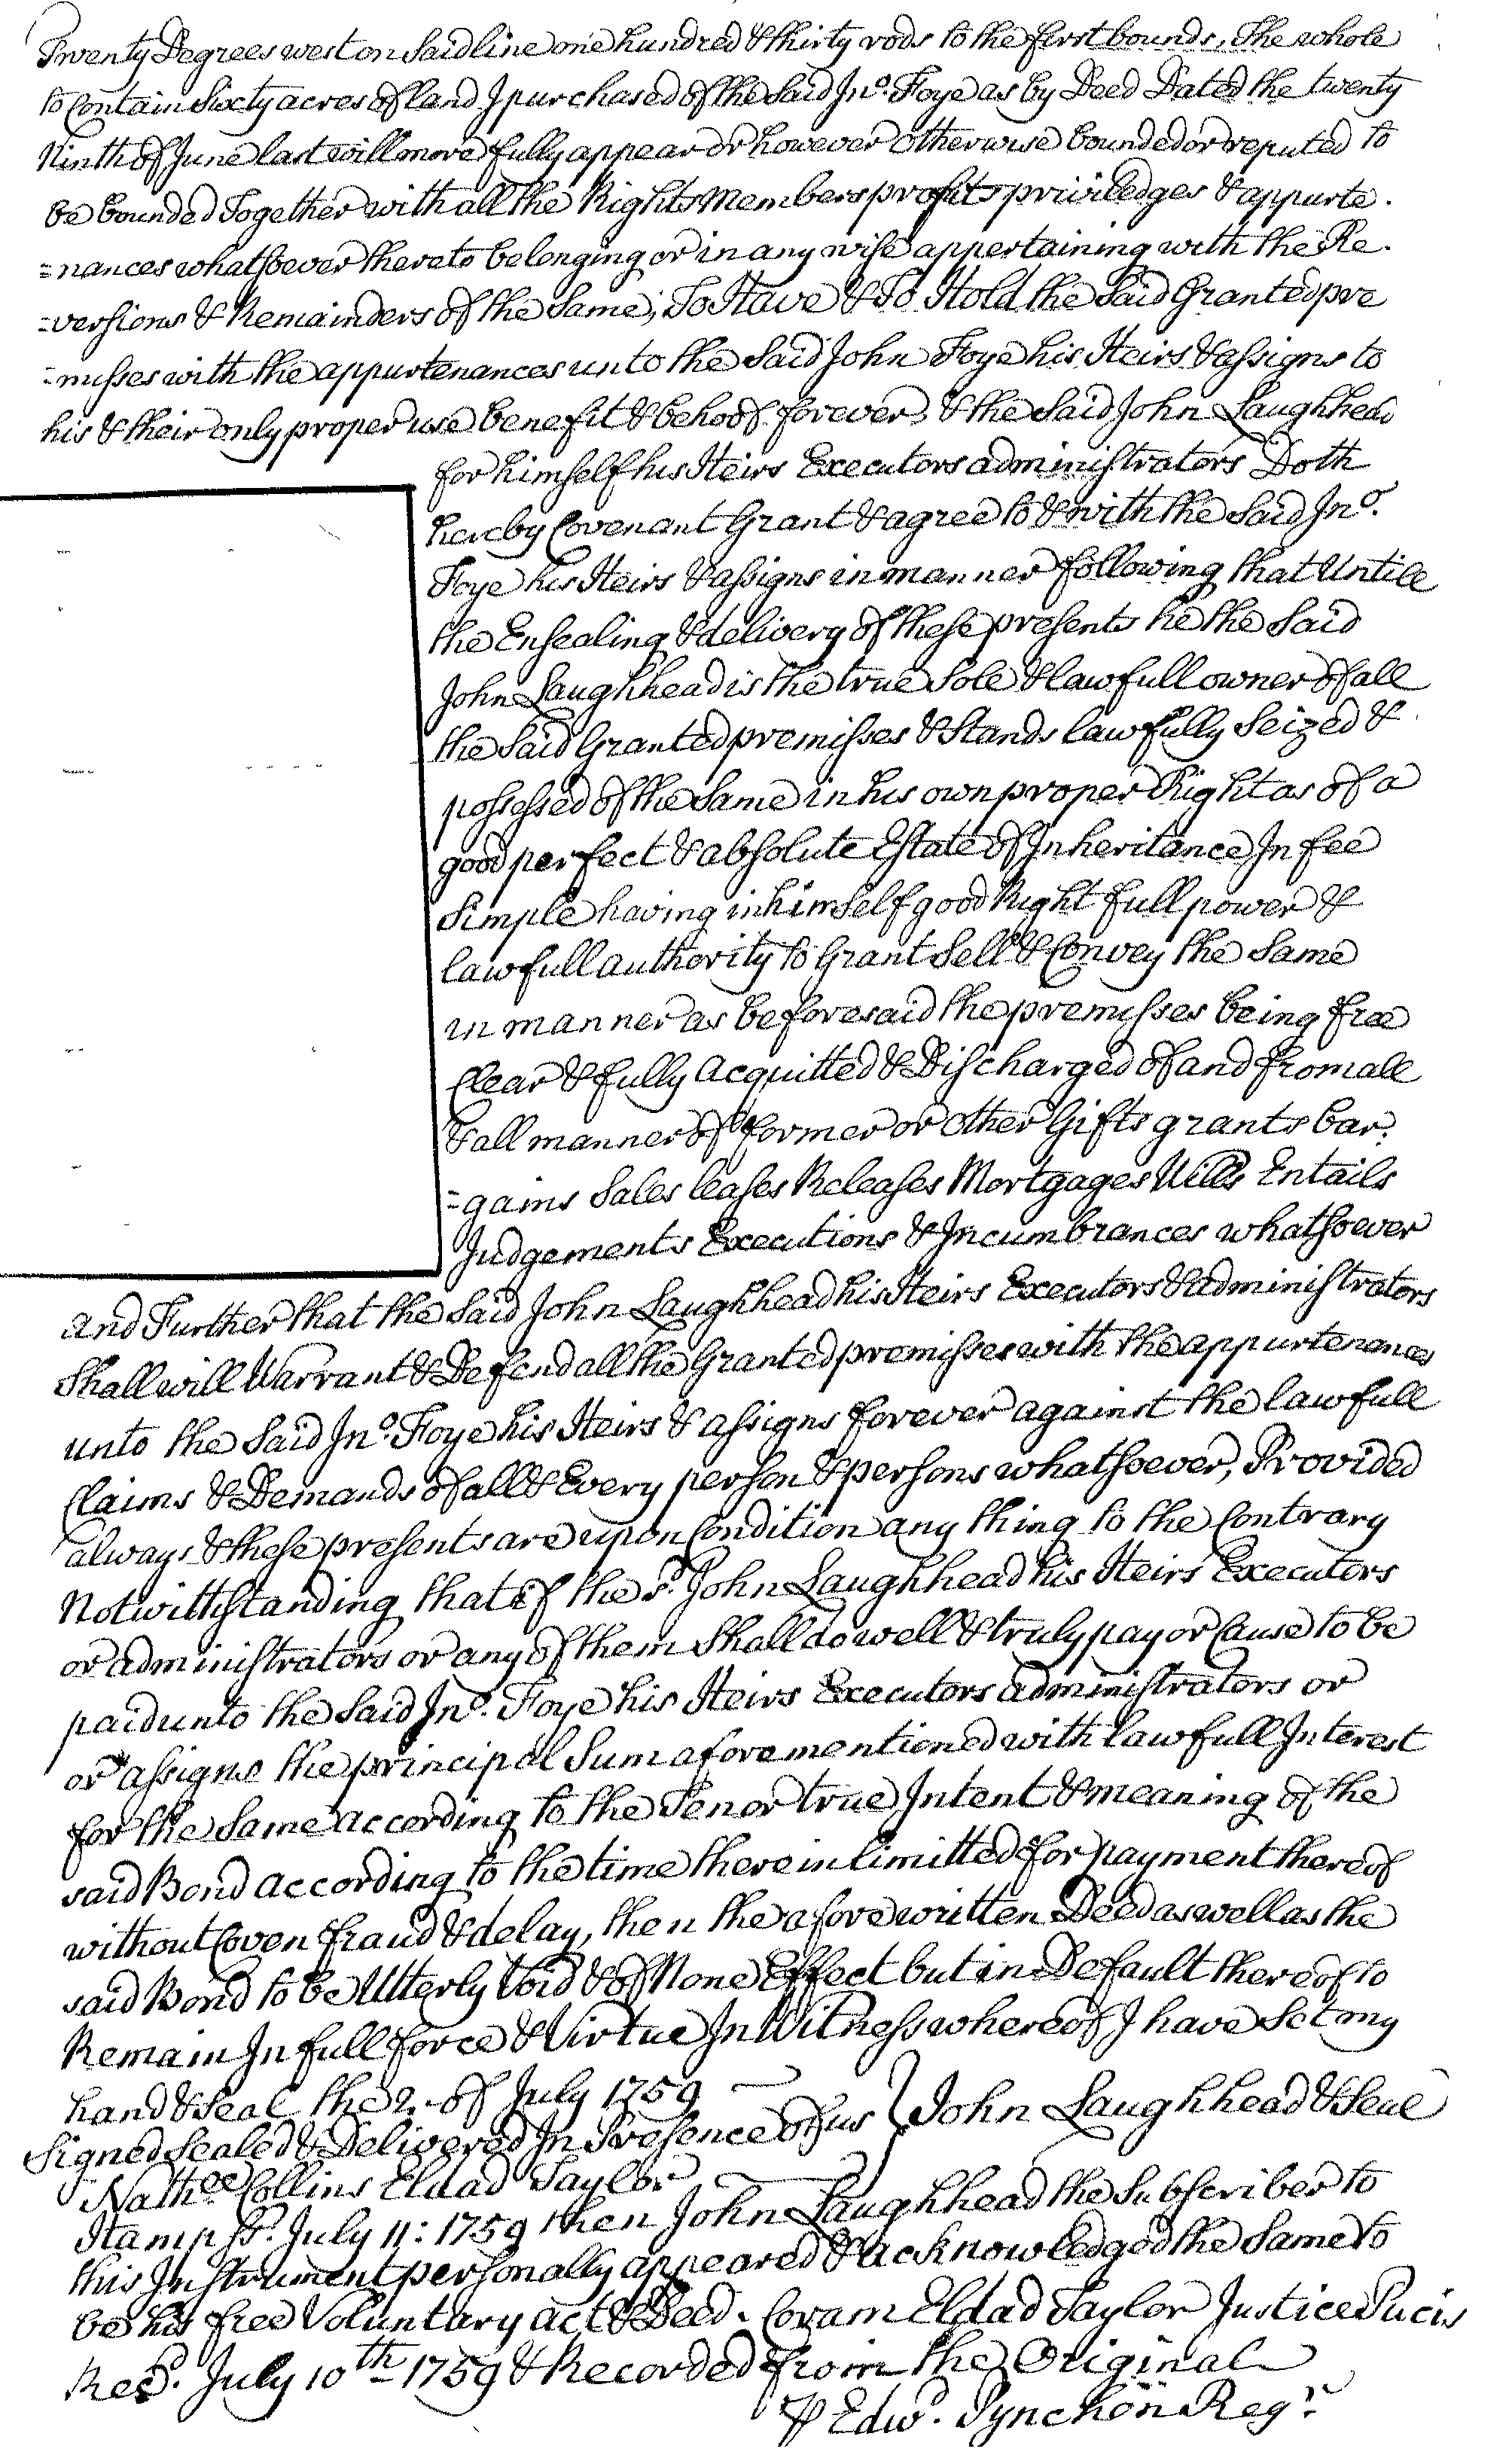 Twenty Degrees west on Said line one hundred & thirty rods to the first bounds, The whole
to Contain Sixty acres of land I purchased of the Said Jno. Foye as by Deed Dated the twenty
Ninth of June last will more fully appear or however Otherwise bounded or reputed to
be bounded Together with all the Rights Members profits priviledges & appurte.
=nances whatsoever thereto belonging or in any wise appertaining with the Re.
=versions & Remainders of the Same, To Have & To Hold the Said Granted pre
=misses with the appurtenances unto the Said John Foye his Heirs & assigns to
his & their only proper use benefit & behoof forever, & the Said John Laughhead
for himself his Heirs Executors administrators Doth
hereby Covenant Grant & agree to & with the Said Jno.
Foye his Heirs & assigns in manner following that Untill
the Ensealing & delivery of these presents he the Said
John Laughhead is the true Sole & lawfull owner of all
the Said Granted premisses & Stands lawfully Seized &
possessed of the Same in his own proper Right as of a
good perfect & absolute Estate of Inheritance In fee
Simple having in himself good Right full power &
lawfull authority to Grant Sell & Convey the Same
in manner as beforesaid the premisses being free
Clear & fully Acquitted & Discharged of and from all
& all manner of former or other Gifts grants bar.
=gains Sales leases Releases Mortgages Wills Entails
Judgements Executions & Incumbrances whatsoever
and Further that the Said John Laughhead his Heirs Executors & administrators
Shall will Warrant & Defend all the Granted premisses with the appurtenances
unto the Said Jno. Foye his Heirs & assigns forever against the lawfull
Claims & Demands of all & Every person & persons whatsoever, Provided
always & these presents are upon Condition any thing to the Contrary
Notwithstanding that if the sd. John Laughhead his Heirs Executors
or administrators or any of them Shall do well & truly pay or Cause to be
paid unto the Said Jno. Foye his Heirs Executors administrators or
or assigns the principal Sum aforementioned with lawfull Interest
for the Same according to the Tenor true Intent & meaning of the
said Bond according to the time therein limitted for payment thereof
without Coven fraud & delay, then the afore written Deed as well as the
said Bond to be Utterly Void & of None Effect but in Default thereof to
Remain In full force & Virtue In Witness whereof I have Set my
hand & Seal the 2. of July 1759
Signed Sealed & Delivered In Presence of us } John Laughhead & Seal
Nathll Collins Eldad Taylor
Hamp ss. July 11: 1759 then John Laughhead the Subscriber to
this Instrument personally appeared & acknowledged the Same to
be his free Voluntary act & Deed. Coram Eldad Taylor Justice Pacis
Recd. July 10th 1759 & Recorded from the Original
⅌ Edwd. Pynchon Regr.